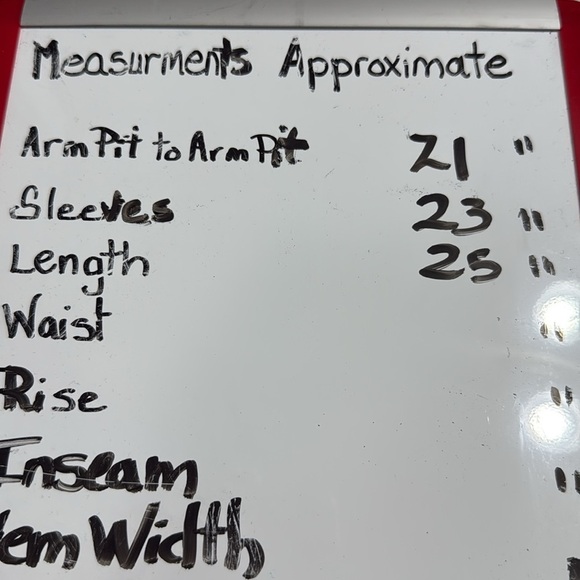 Measurments Approximate
Arm Pit to Arm Pit 21 "
Sleeves 23 "
Length 25 "
Waist "
Rise "
Inseam "
em Width